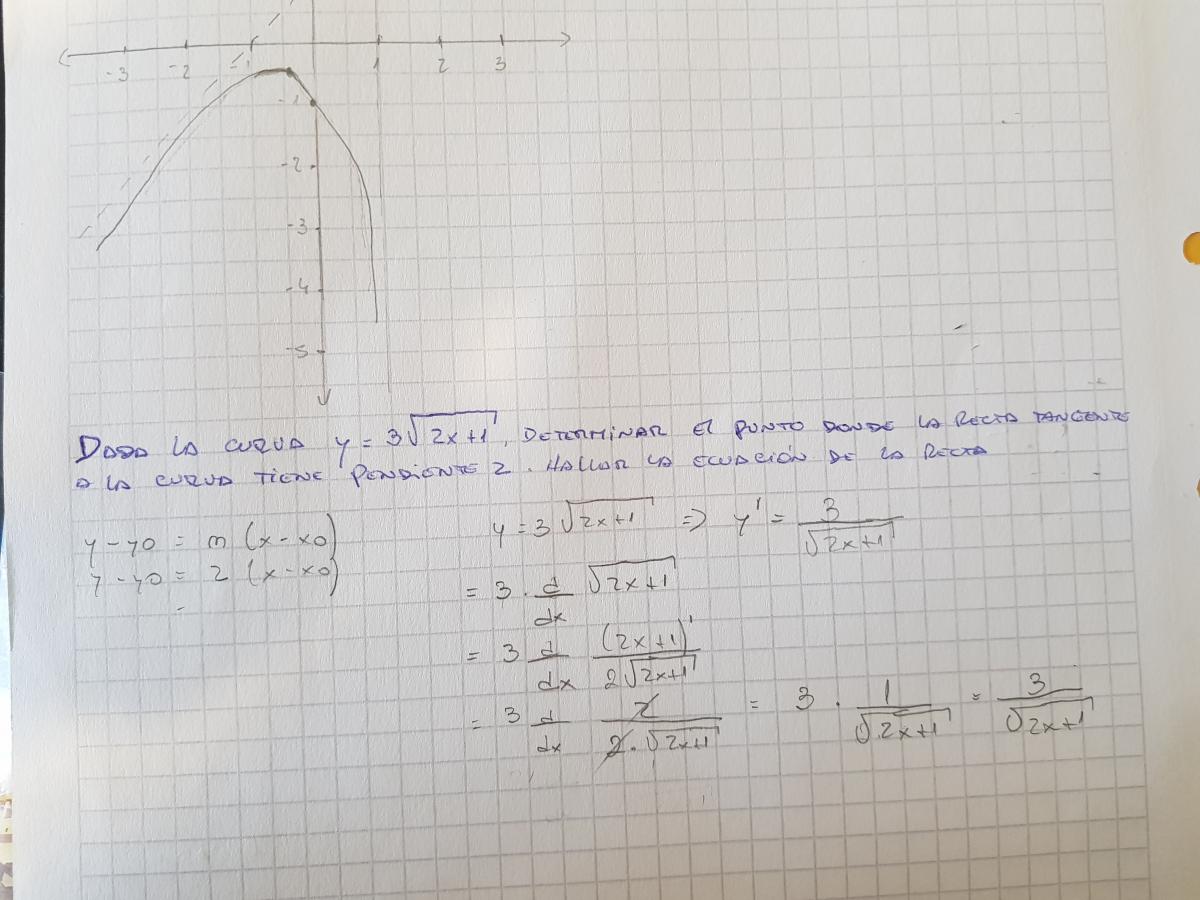 -3 -2 -1 1 2 3
-1
-2
-3
-4
-5
DADA LA CURVA y = 3√(2x+1), DETERMINAR EL PUNTO DONDE LA RECTA TANGENTE
A LA CURVA TIENE PENDIENTE 2. HALLAR LA ECUACIÓN DE LA RECTA
y - y0 = m (x - x0)
y - y0 = 2 (x - x0)
=
y = 3√(2x+1) => y' = 3/√(2x+1)
= 3 · d/dx √(2x+1)
= 3 d/dx (2x+1)'/(2√(2x+1))
= 3 d/dx 2/(2·√(2x+1)) = 3 · 1/√(2x+1) = 3/√(2x+1)